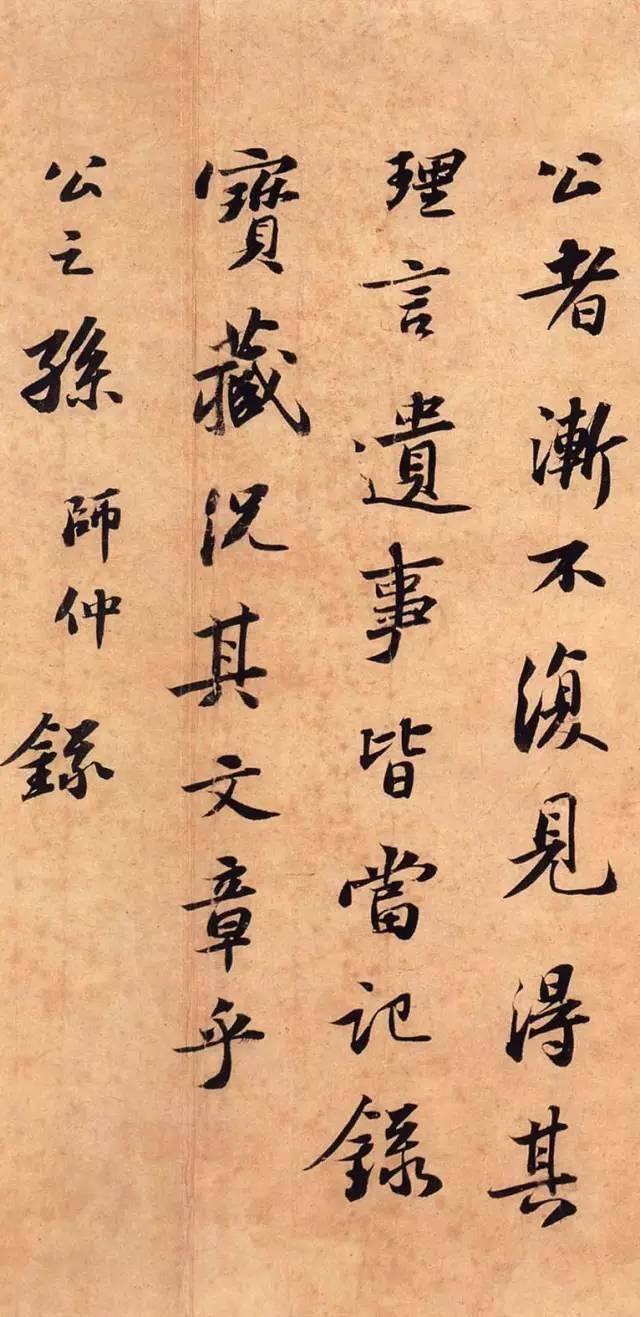 公者漸不復見得其
理言遺事皆當記錄
寶藏況其文章乎
公之孫師仲錄